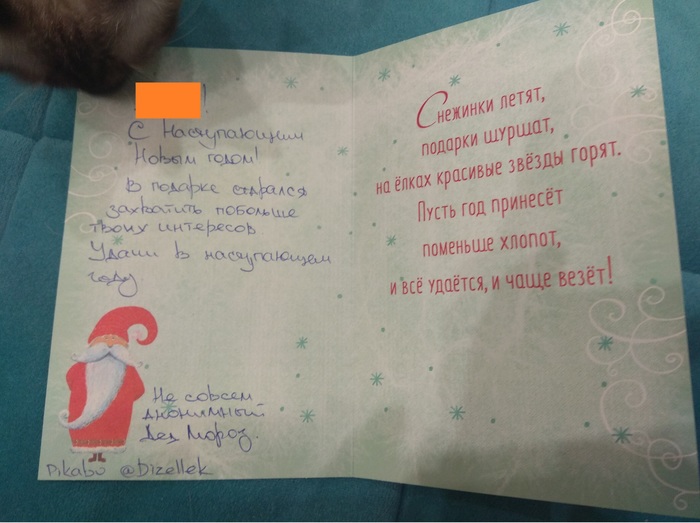 !
С Наступающим
Новым годом!
В подарке старался
захватить побольше
твоих интересов
Удачи в наступающем
году
Не совсем
анонимный
Дед Мороз.
Pikabu @Dizellek
Снежинки летят,
подарки шуршат,
на ёлках красивые звёзды горят.
Пусть год принесёт
поменьше хлопот,
и всё удаётся, и чаще везёт!